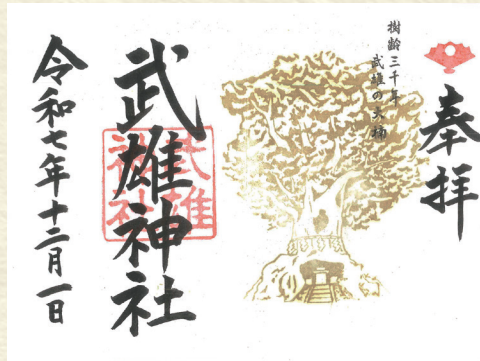 奉拝
樹齢三千年
武雄の大楠
武雄神社
武雄神社
令和七年十二月一日